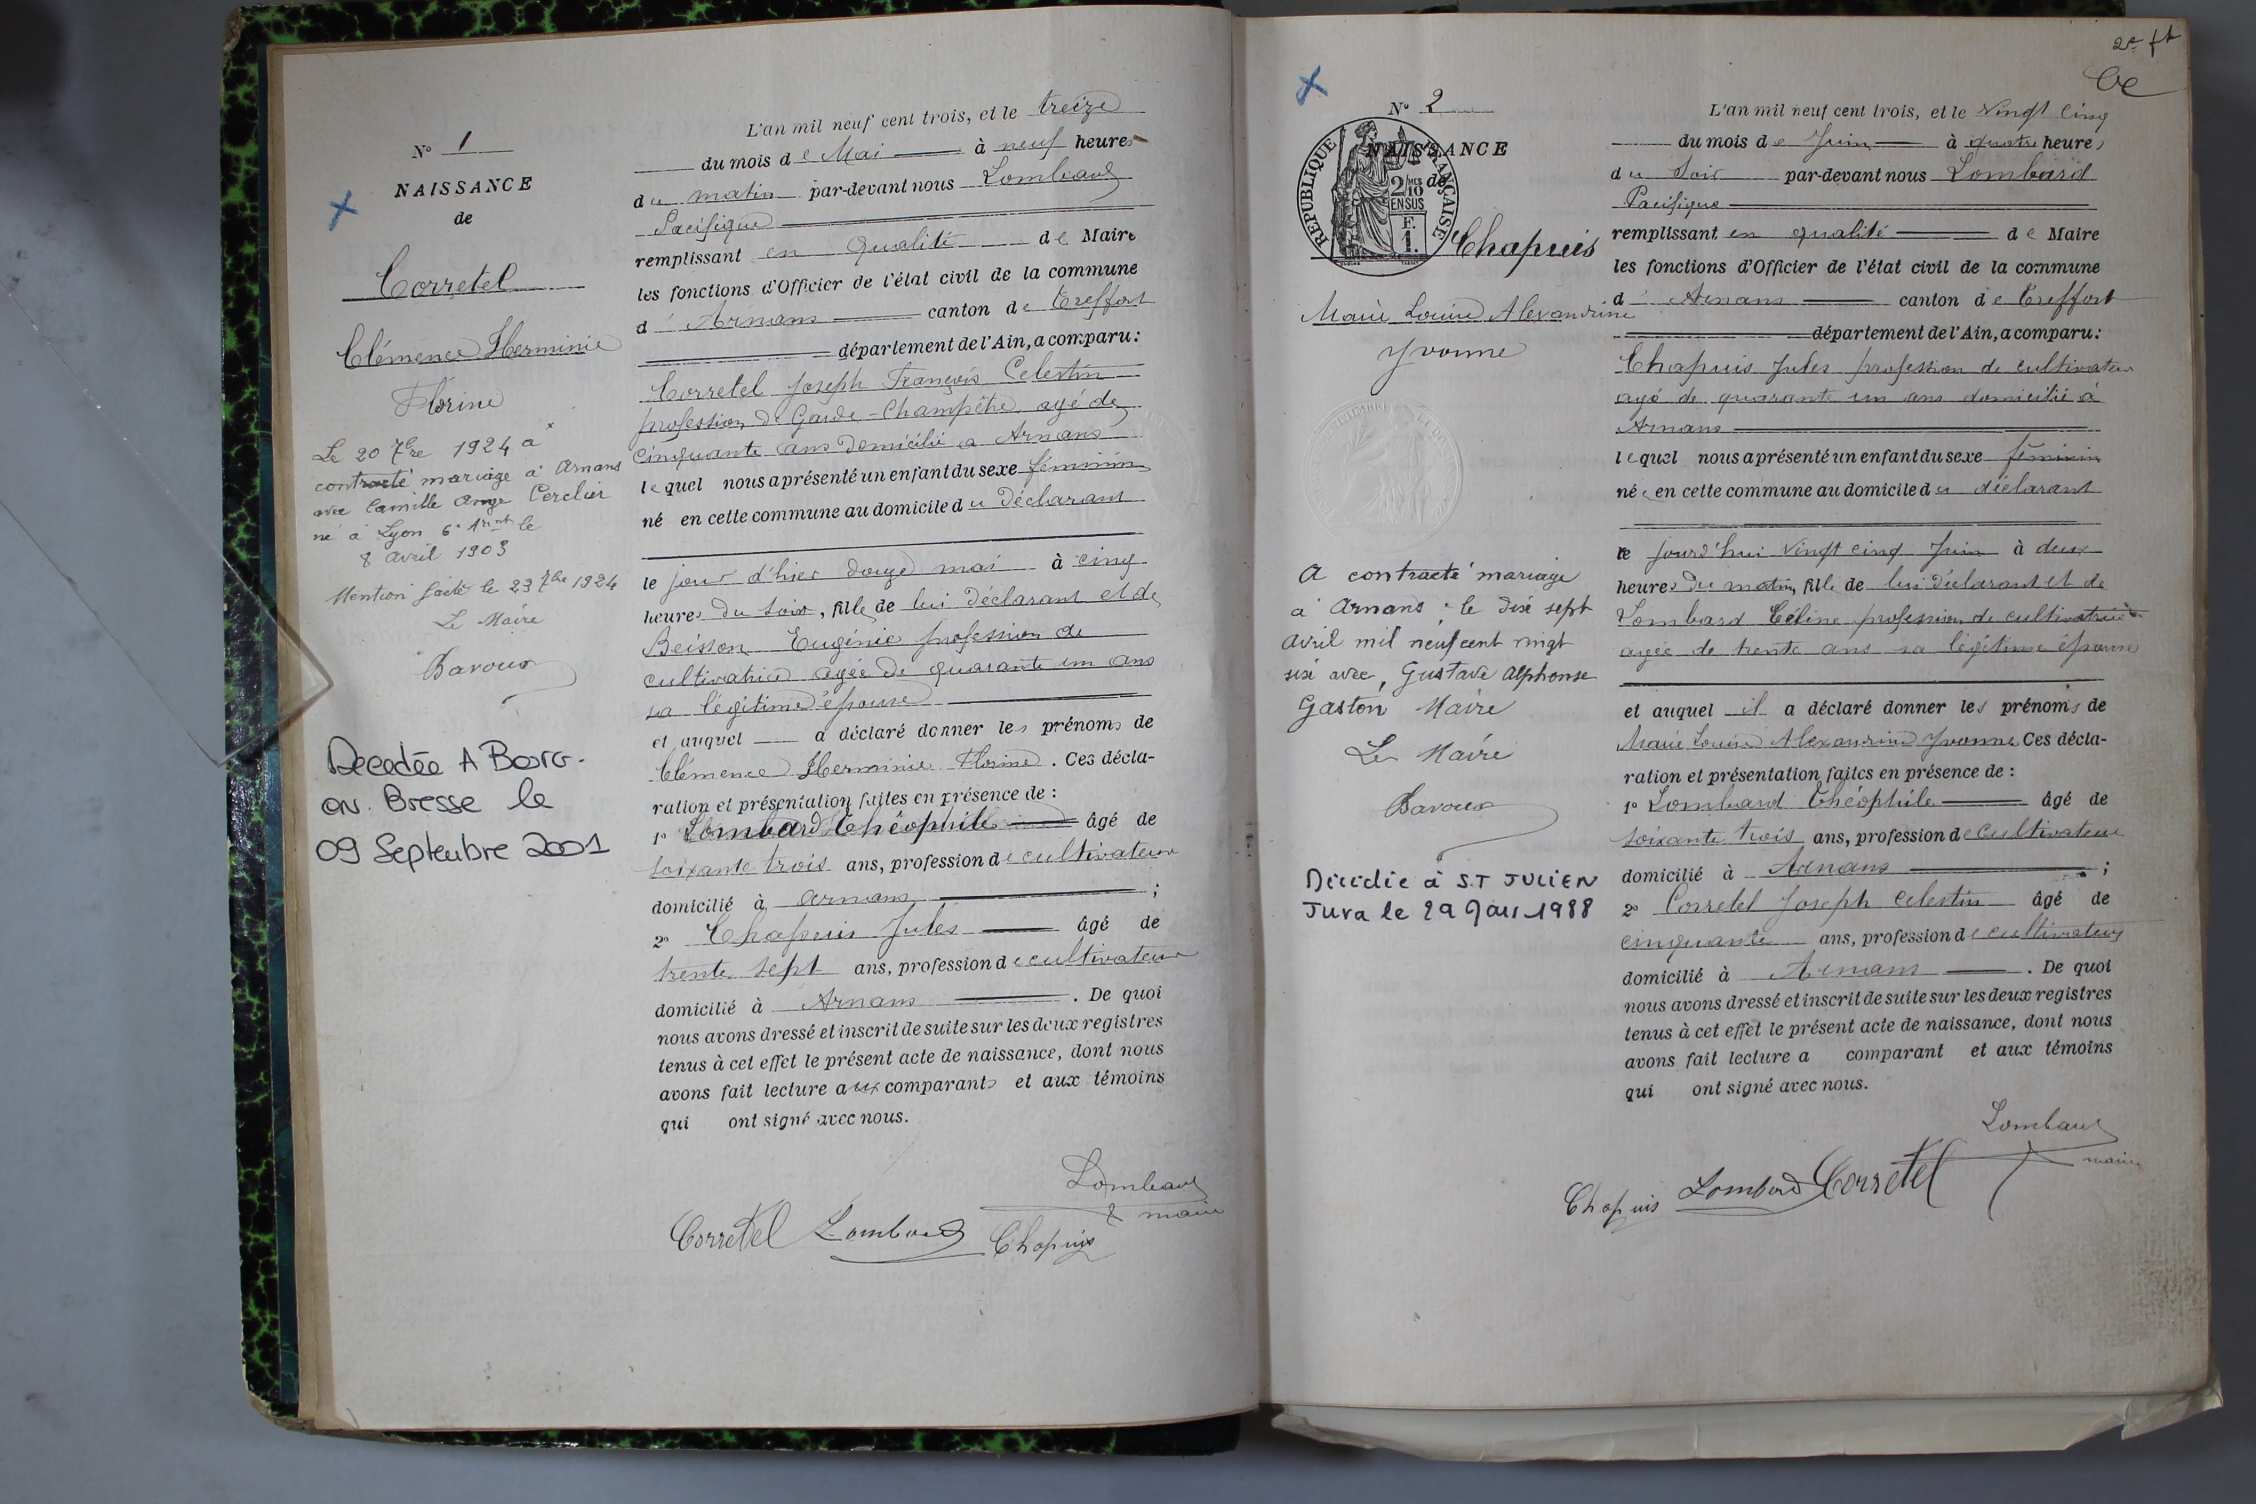 N° 1
NAISSANCE
de
Corretel
Clémence Herminie
Florine
Le 20 7bre 1924 a
contracté mariage à Arnans
avec Camille Ange Cerclier
né à Lyon 6e Arrdt le
8 avril 1903
Mention faite le 23 7bre 1924
Le Maire
Bavoux
Décédée A Bourg-
en. Bresse le
09 Septembre 2001
L'an mil neuf cent trois, et le treize
du mois de Mai à neuf heures
du matin par-devant nous Lombard
Pacifique
remplissant en qualité de Maire
les fonctions d'Officier de l'état civil de la commune
d' Arnans canton de Treffort
département de l'Ain, a comparu:
Corretel Joseph François Celestin
profession de Garde-Champêtre agé de
cinquante ans domicilié a Arnans
lequel nous a présenté un enfant du sexe féminin
né en cette commune au domicile du déclarant
le jour d'hier douze mai à cinq
heures du soir, fille de lui déclarant et de
Beisson Eugénie profession de
cultivatrice agée de quarante un ans
sa légitime épouse
et auquel a déclaré donner les prénoms de
Clémence Herminie Florine. Ces décla-
ration et présentation faites en présence de :
1° Lombard Théophile âgé de
soixante trois ans, profession de cultivateur
domicilié à arnans ;
2° Chapuis Jules âgé de
trente sept ans, profession de cultivateur
domicilié à Arnans . De quoi
nous avons dressé et inscrit de suite sur les deux registres
tenus à cet effet le présent acte de naissance, dont nous
avons fait lecture aux comparants et aux témoins
qui ont signé avec nous.
Lombard
maire
Corretel Lombard Chapuis
2e ft
N° 2
NAISSANCE
de
REPUBLIQUE FRANÇAISE
2/10
EN SUS
F.
1.
Chapuis
Marie Louise Alexandrine
Yvonne
A contracté mariage
à Arnans le dix sept
avril mil neuf cent vingt
six avec, Gustave Alphonse
Gaston Maire
Le Maire
Bavoux
Décédée à ST JULIEN
Jura le 29 Mars 1988
L'an mil neuf cent trois, et le vingt cinq
du mois de Juin à quatre heures
du soir par-devant nous Lombard
Pacifique
remplissant en qualité de Maire
les fonctions d'Officier de l'état civil de la commune
d' Arnans canton de Treffort
département de l'Ain, a comparu:
Chapuis Jules profession de cultivateur
agé de quarante un ans domicilié à
Arnans
lequel nous a présenté un enfant du sexe féminin
née en cette commune au domicile du déclarant
le jourd'hui vingt cinq Juin à deux
heures du matin, fille de lui déclarant et de
Lombard Céline profession de cultivatrice
agée de trente ans sa légitime épouse
et auquel il a déclaré donner les prénoms de
Marie Louise Alexandrine Yvonne Ces décla-
ration et présentation faites en présence de :
1° Lombard Théophile âgé de
soixante trois ans, profession de cultivateur
domicilié à Arnans ;
2° Corretel Joseph Celestin âgé de
cinquante ans, profession de cultivateur
domicilié à Arnans . De quoi
nous avons dressé et inscrit de suite sur les deux registres
tenus à cet effet le présent acte de naissance, dont nous
avons fait lecture a comparant et aux témoins
qui ont signé avec nous.
Lombard
maire
Chapuis Lombard Corretel